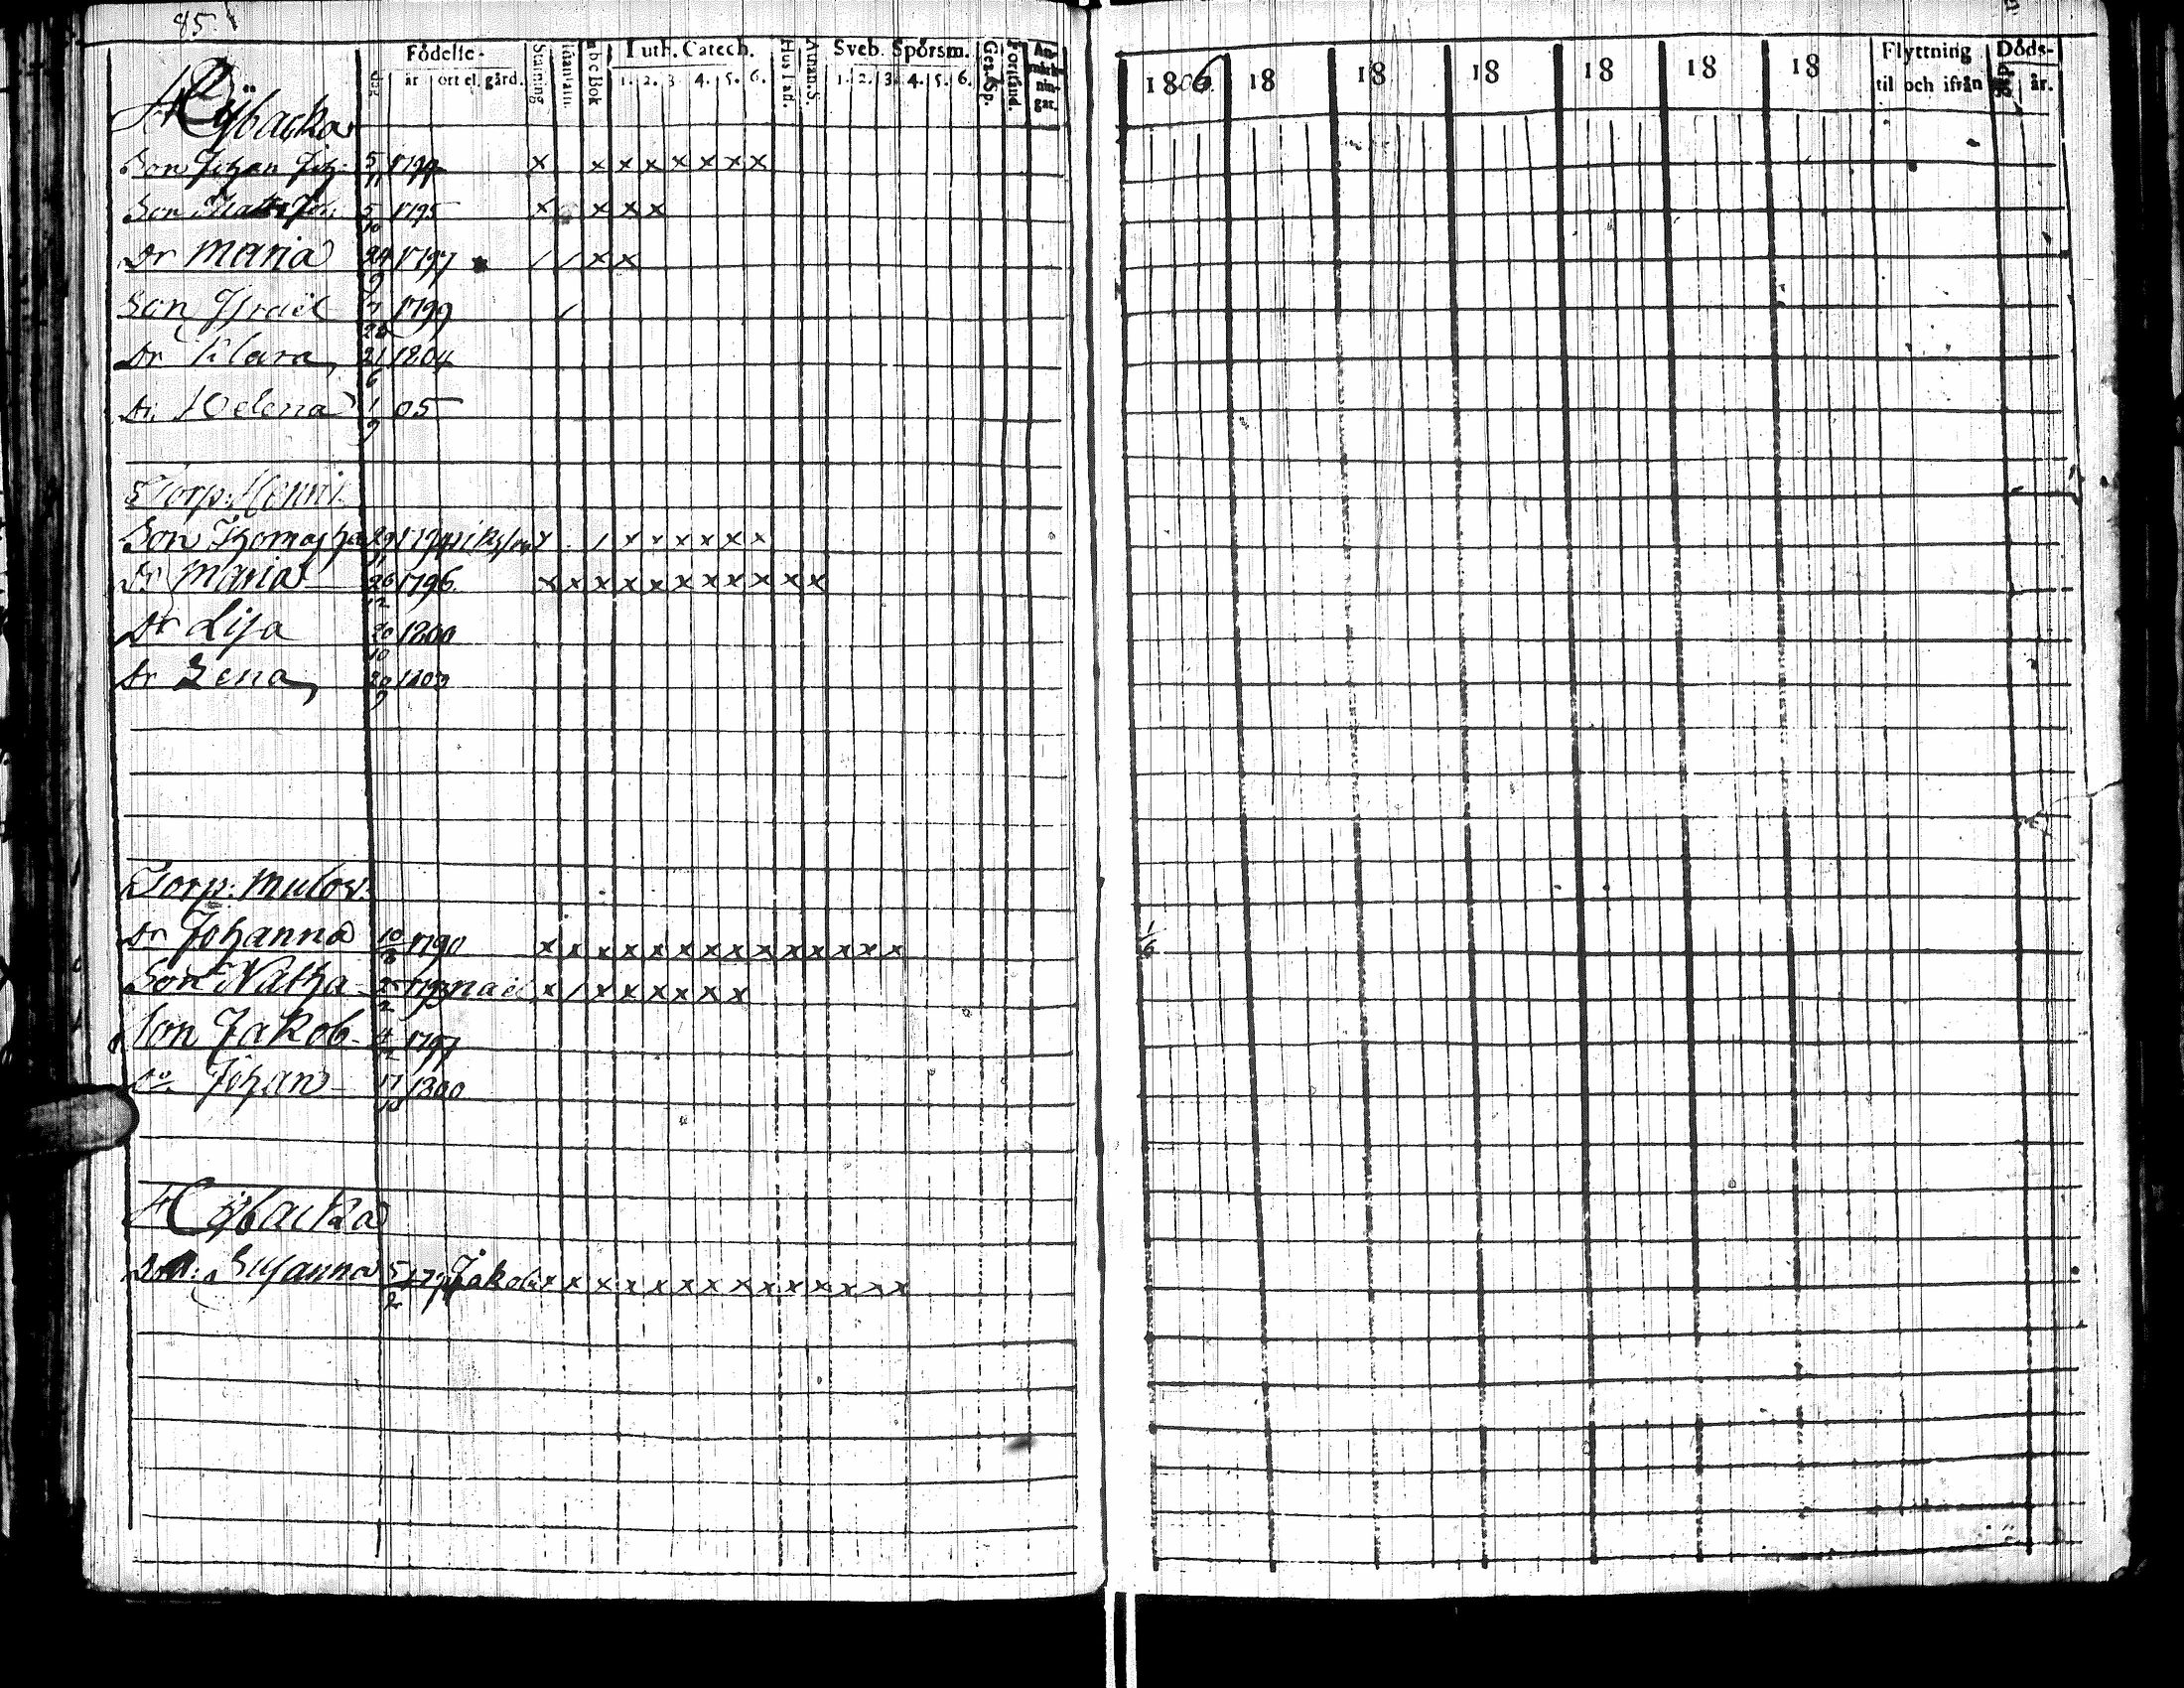 85.
Födelse- Luth. Catech. Sveb. Spörsm.
år ort el. gård. Stafning a b c Bok 1. 2. 3. 4. 5. 6. Hus Taf. Athan. S. 1. 2. 3. 4. 5. 6. Förstånd. An-märk-nin-gar.
1806 18 18 18 18 18 18 Flyttning til och ifrån Döds- år.
Son Johan Joh. 5/11 x x x x x x x x
Son Matts Joh. 5/10 1795 x x x x
Dr Maria 24/9 1797 / / x x
Son Israel 1799 /
Dr Klara 21/6 1804
Dr. Helena 1/9 05
Torp. Henri
Son Thomas x / x x x x x x
Dr Maria 26/12 1796. x x x x x x x x x x x
Dr Lisa 20/10 1800
Dr Lena 20/9
Torp. Mulov.
Dr Johanna 10/8 1790 x x x x x x x x x x x x x x 1/6
Son Natha- 1793 nael x / x x x x x x
Son Jakob 4/12 1797
do. Johan 17/10 1800
Susanna 5/2 Jakobs x x x x x x x x x x x x x x